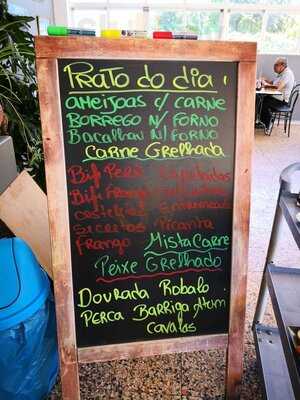 Prato do dia
Ameijoas c/ carne
Borrego N/ Forno
Bacalhau N/ Forno
Carne Grelhada
Bif Perú
Bif Frango
Secretos Picanha
Frango Mista Carne
Peixe Grelhado
Dourada Robalo
Perca Barriga Atum
Cavalas